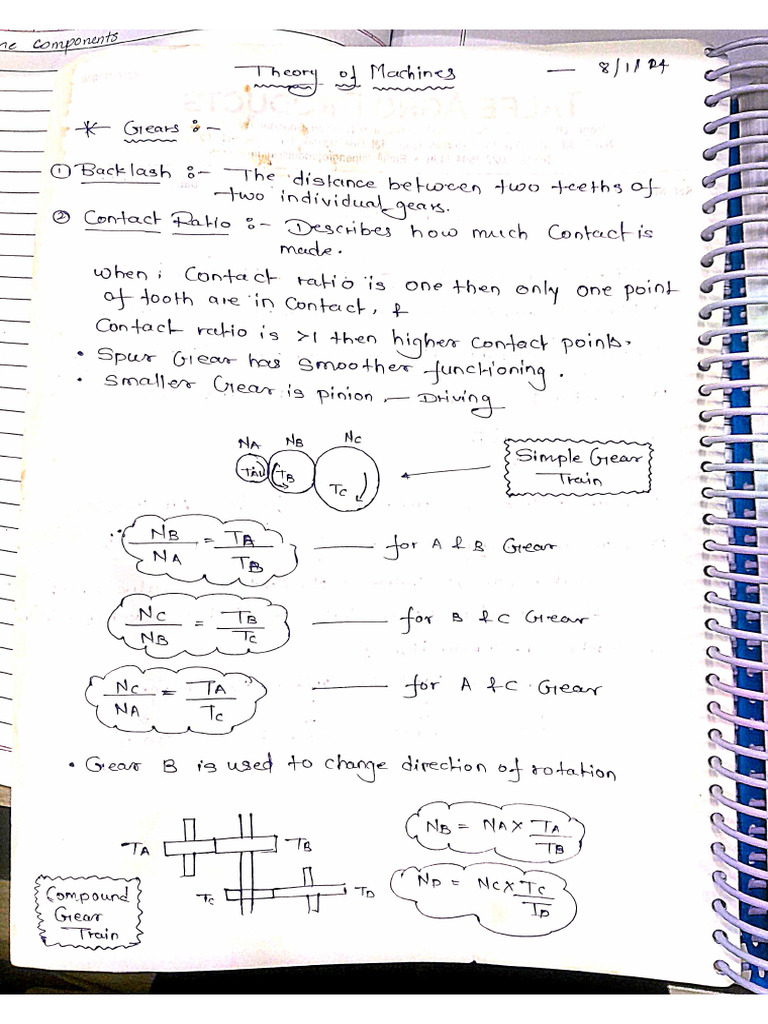 ne components
Theory of Machines — 8/1/24
* Gears :-
① Backlash :- The distance between two teeths of
two individual gears.
② Contact Ratio :- Describes how much Contact is
made.
when; Contact ratio is one then only one point
of tooth are in Contact, &
Contact ratio is >1 then higher Contact points.
• Spur Gear has smoother functioning.
• Smaller Gear is pinion, — Driving
NA NB NC
TA TB TC
Simple Gear
Train
∴ NB/NA = TA/TB — for A & B Gear
NC/NB = TB/TC — for B & C Gear
NC/NA = TA/TC — for A & C Gear
• Gear B is used to change direction of rotation
TA TB
TC TD
Compound
Gear
Train
NB = NA × TA/TB
ND = NC × TC/TD